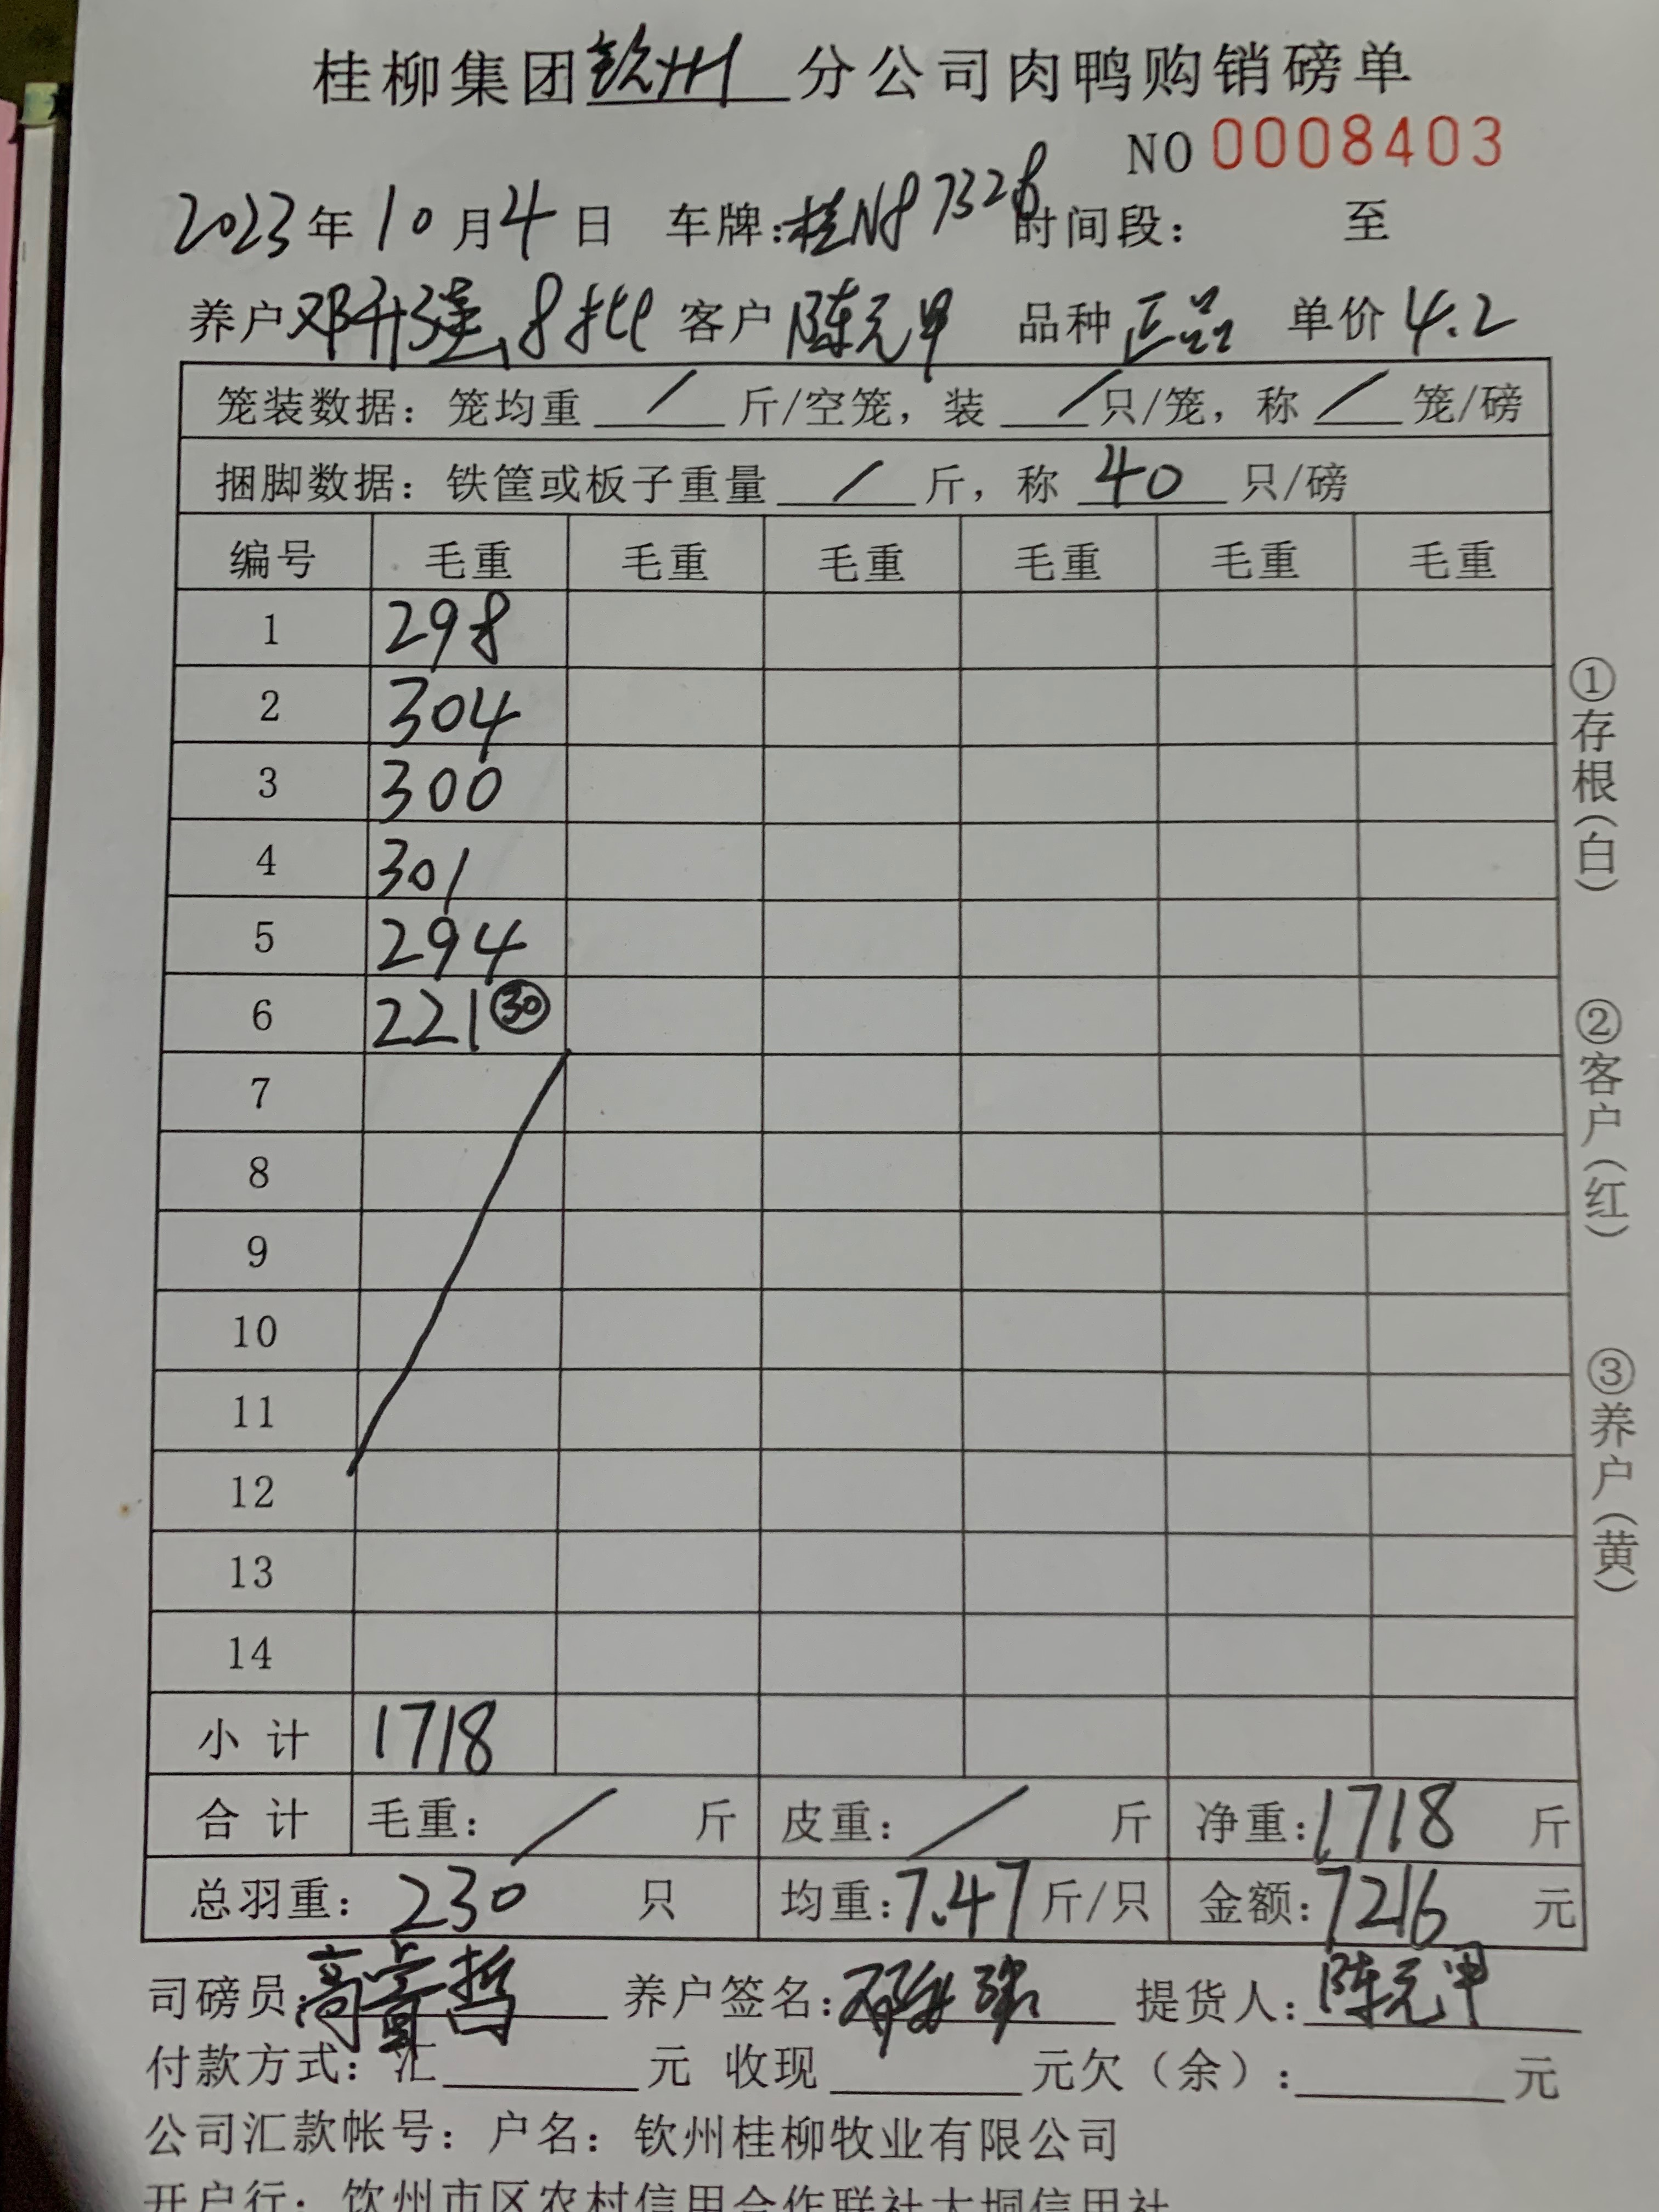 桂柳集团钦州分公司肉鸭购销磅单
NO 0008403
2023年10月4日 车牌:桂N87328 时间段: 至
养户邓升强8批 客户陈元甲 品种正品 单价4.2
笼装数据: 笼均重 / 斤/空笼, 装 / 只/笼, 称 / 笼/磅
捆脚数据: 铁筐或板子重量 / 斤, 称 40 只/磅
编号 毛重 毛重 毛重 毛重 毛重 毛重
1 298
2 304
3 300
4 301
5 294
6 221 ㉚
7
8
9
10
11
12
13
14
小计 1718
合计 毛重: / 斤 皮重: / 斤 净重:1718 斤
总羽重: 230 只 均重:7.47斤/只 金额:7216 元
司磅员: 养户签名: 提货人:陈元甲
付款方式: 汇 元 收现 元欠(余): 元
公司汇款帐号: 户名: 钦州桂柳牧业有限公司
开户行: 钦州市区农村信用合作联社大垌信用社
①存根(白)
②客户(红)
③养户(黄)